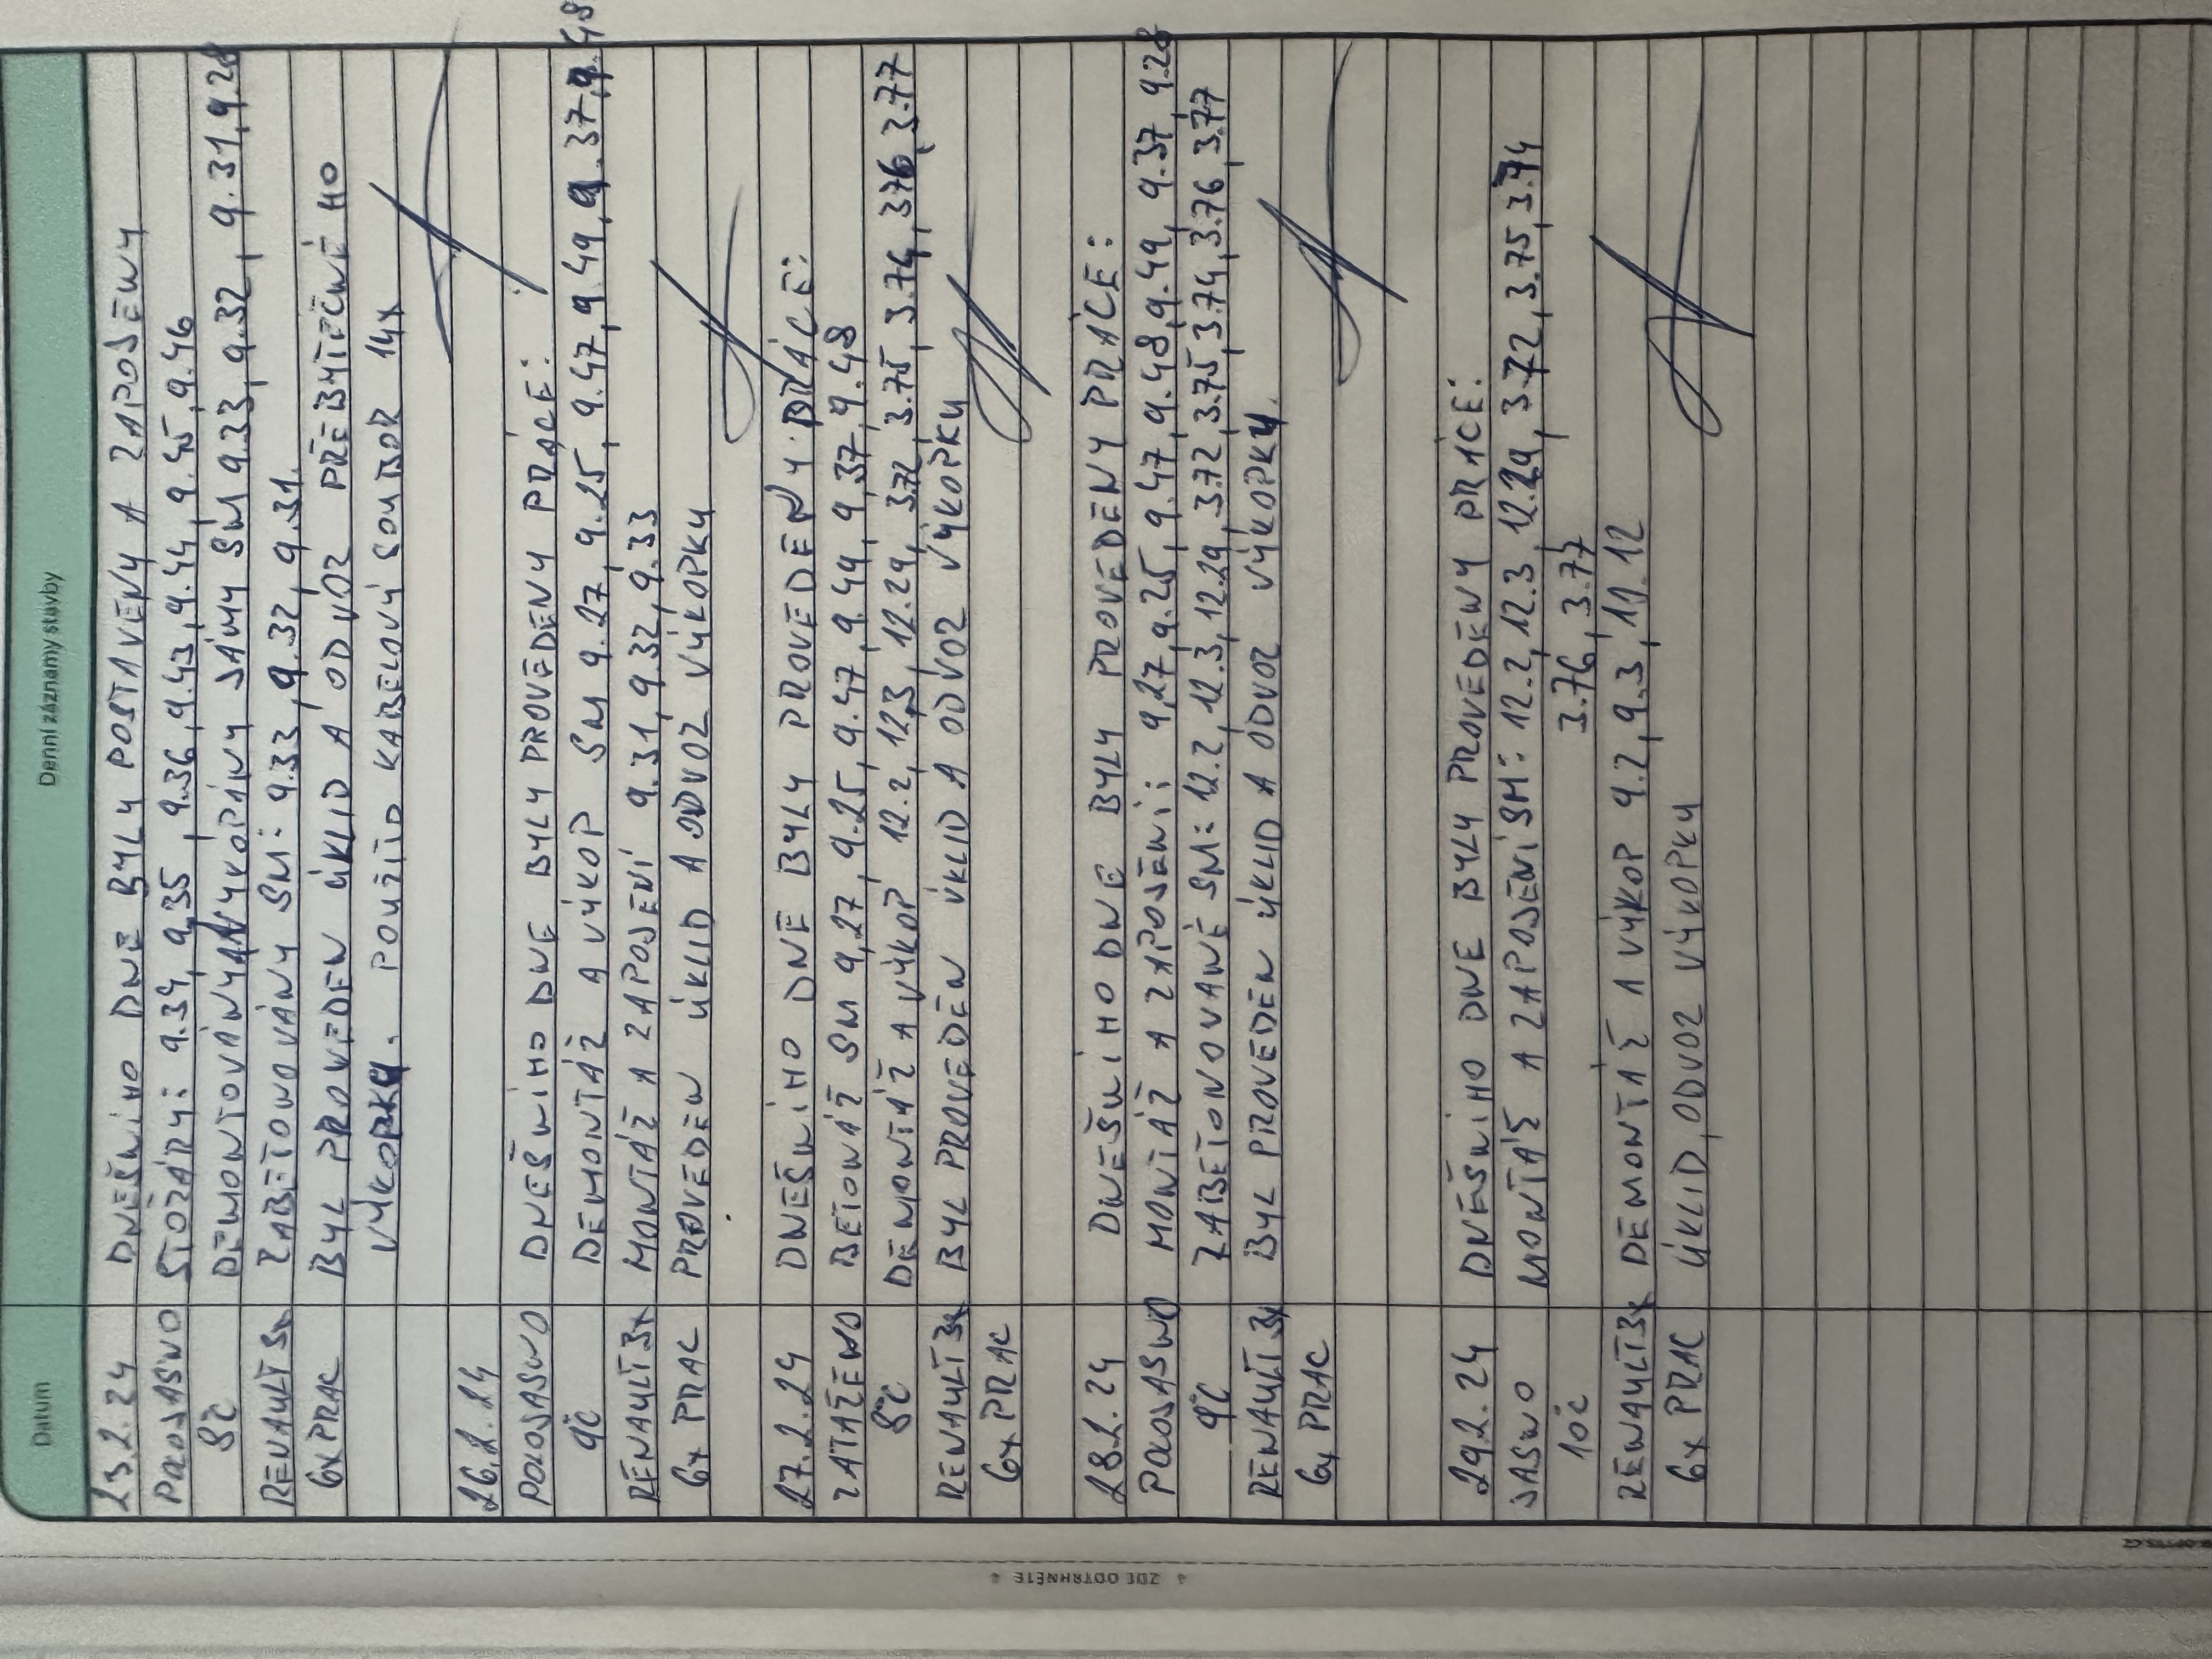 Datum Denní záznamy stavby
23.2.24 DNEŠNÍHO DNE BYLY POSTAVENY A ZAPOJENY
POLOJASNO STOŽÁRY: 9.34, 9.35, 9.36, 9.43, 9.44, 9.45, 9.46
8°C DEMONTOVÁNY A VYKOPÁNY JÁMY SM 9.33, 9.32, 9.31, 9.28
RENAULT 3x ZABETONOVÁNY SM: 9.33, 9.32, 9.31.
6x PRAC BYL PROVEDEN ÚKLID A ODVOZ PŘEBYTEČNÉHO
VÝKOPKU. POUŽITO KABELOVÝ SOUBOR 14x
26.2.24
POLOJASNO DNEŠNÍHO DNE BYLY PROVEDENY PRÁCE:
9°C DEMONTÁŽ A VÝKOP SM 9.27, 9.25, 9.47, 9.49, 9.37, 9.48
RENAULT 3x MONTÁŽ A ZAPOJENÍ 9.31, 9.32, 9.33
6x PRAC PROVEDEN ÚKLID A ODVOZ VÝKOPKU
27.2.24 DNEŠNÍHO DNE BYLY PROVEDENY PRÁCE:
ZATAŽENO BETONÁŽ SM 9,27, 9.25, 9.47, 9.49, 9,37, 9.48
8°C DEMONTÁŽ A VÝKOP 12.2, 12.3, 12.29, 3.72, 3.75, 3.74, 3.76, 3.77
RENAULT 3x BYL PROVEDEN ÚKLID A ODVOZ VÝKOPKU
6x PRAC
28.2.24 DNEŠNÍHO DNE BYLY PROVEDENY PRÁCE:
POLOJASNO MONTÁŽ A ZAPOJENÍ: 9,27, 9.25, 9.47, 9.48, 9.49, 9.37, 9.28
9°C ZABETONOVANÉ SM: 12.2, 12.3, 12.29, 3.72, 3.75, 3.74, 3.76, 3.77
RENAULT 3x BYL PROVEDEN ÚKLID A ODVOZ VÝKOPKU.
6x PRAC
29.2.24 DNEŠNÍHO DNE BYLY PROVEDENY PRÁCE:
JASNO MONTÁŽ A ZAPOJENÍ SM: 12.2, 12.3, 12.29, 3.72, 3.75, 3.74
10°C 3.76, 3.77
RENAULT 3x DEMONTÁŽ A VÝKOP 9.2, 9.3, 11.12
6x PRAC ÚKLID, ODVOZ VÝKOPKU
ZDE ODTRHNĚTE